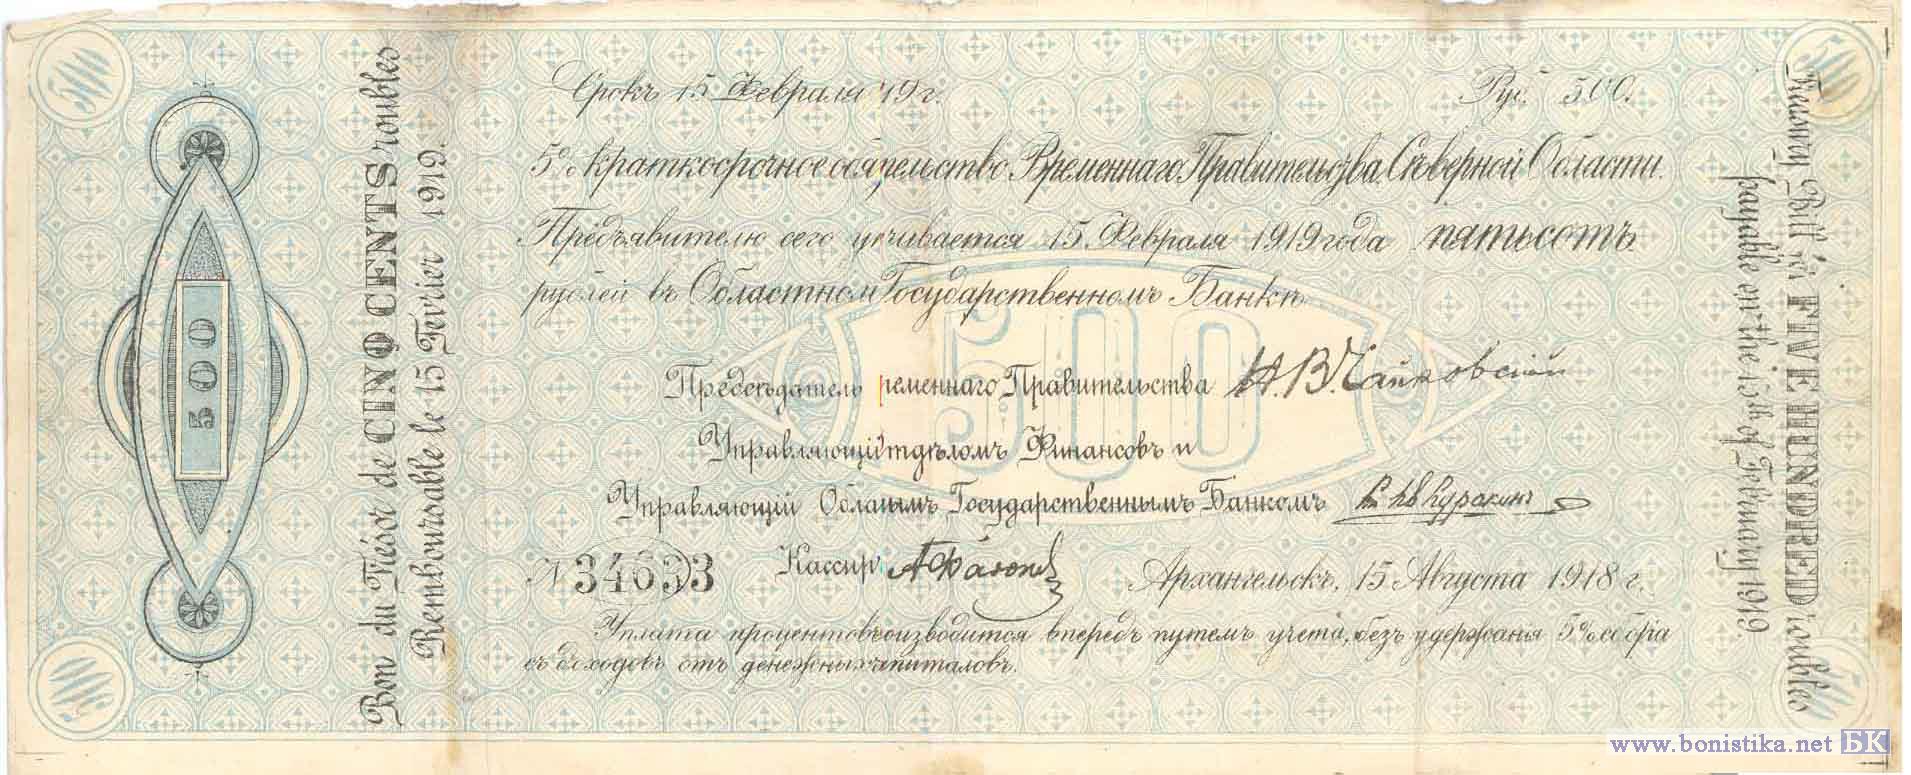 500
Bon du Trésor de CINQ CENTS roubles
Remboursable le 15 Fevrier 1919.
Срокъ 15 Февраля 19 г.
Руб. 500.
5% краткосрочное обязательство Временнаго Правительства Сѣверной Области.
Предъявителю сего уплачивается 15 Февраля 1919 года пятьсотъ
рублей въ Областномъ Государственномъ Банкѣ
500
Предсѣдатель ременнаго Правительства Н.В. Чайковскій
Управляющій тдѣломъ Финансовъ и
Управляющій Облаымъ Государственнымъ Банкомъ
N 34633 Кассиръ
Архангельскъ, 15 Августа 1918 г.
Уплата процентовъ оизводится впередъ путемъ учета, безъ удержанія 5% сбора
съ доходовъ отъ денежныхъ апиталовъ.
Treasury Bill for FIVE HUNDRED roubles
payable on the 15th of February 1919.
500
500
500
500
www.bonistika.net БК